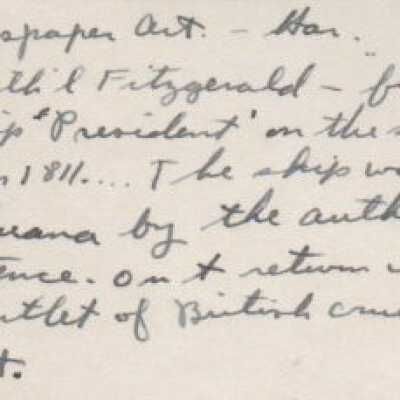 spaper Art. - Har.
th'l Fitzgerald - f
ip "President" on the s
n 1811.... The ship w
uana by the auth
ence. On t return
utlet of British cru
t.